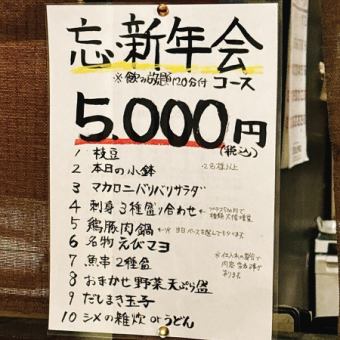 忘・新年会
※飲み放題120分付 コース
5.000円
(税込)
1 枝豆
2名様以上
2 本日の小鉢
3 マカロニバリバリサラダ
4 刺身3種盛り合わせ
5 鶏豚肉鍋
6 名物えびマヨ
7 魚串2種盛
8 おまかせ野菜天ぷら盛
9 だしまき玉子
10 シメの雑炊orうどん